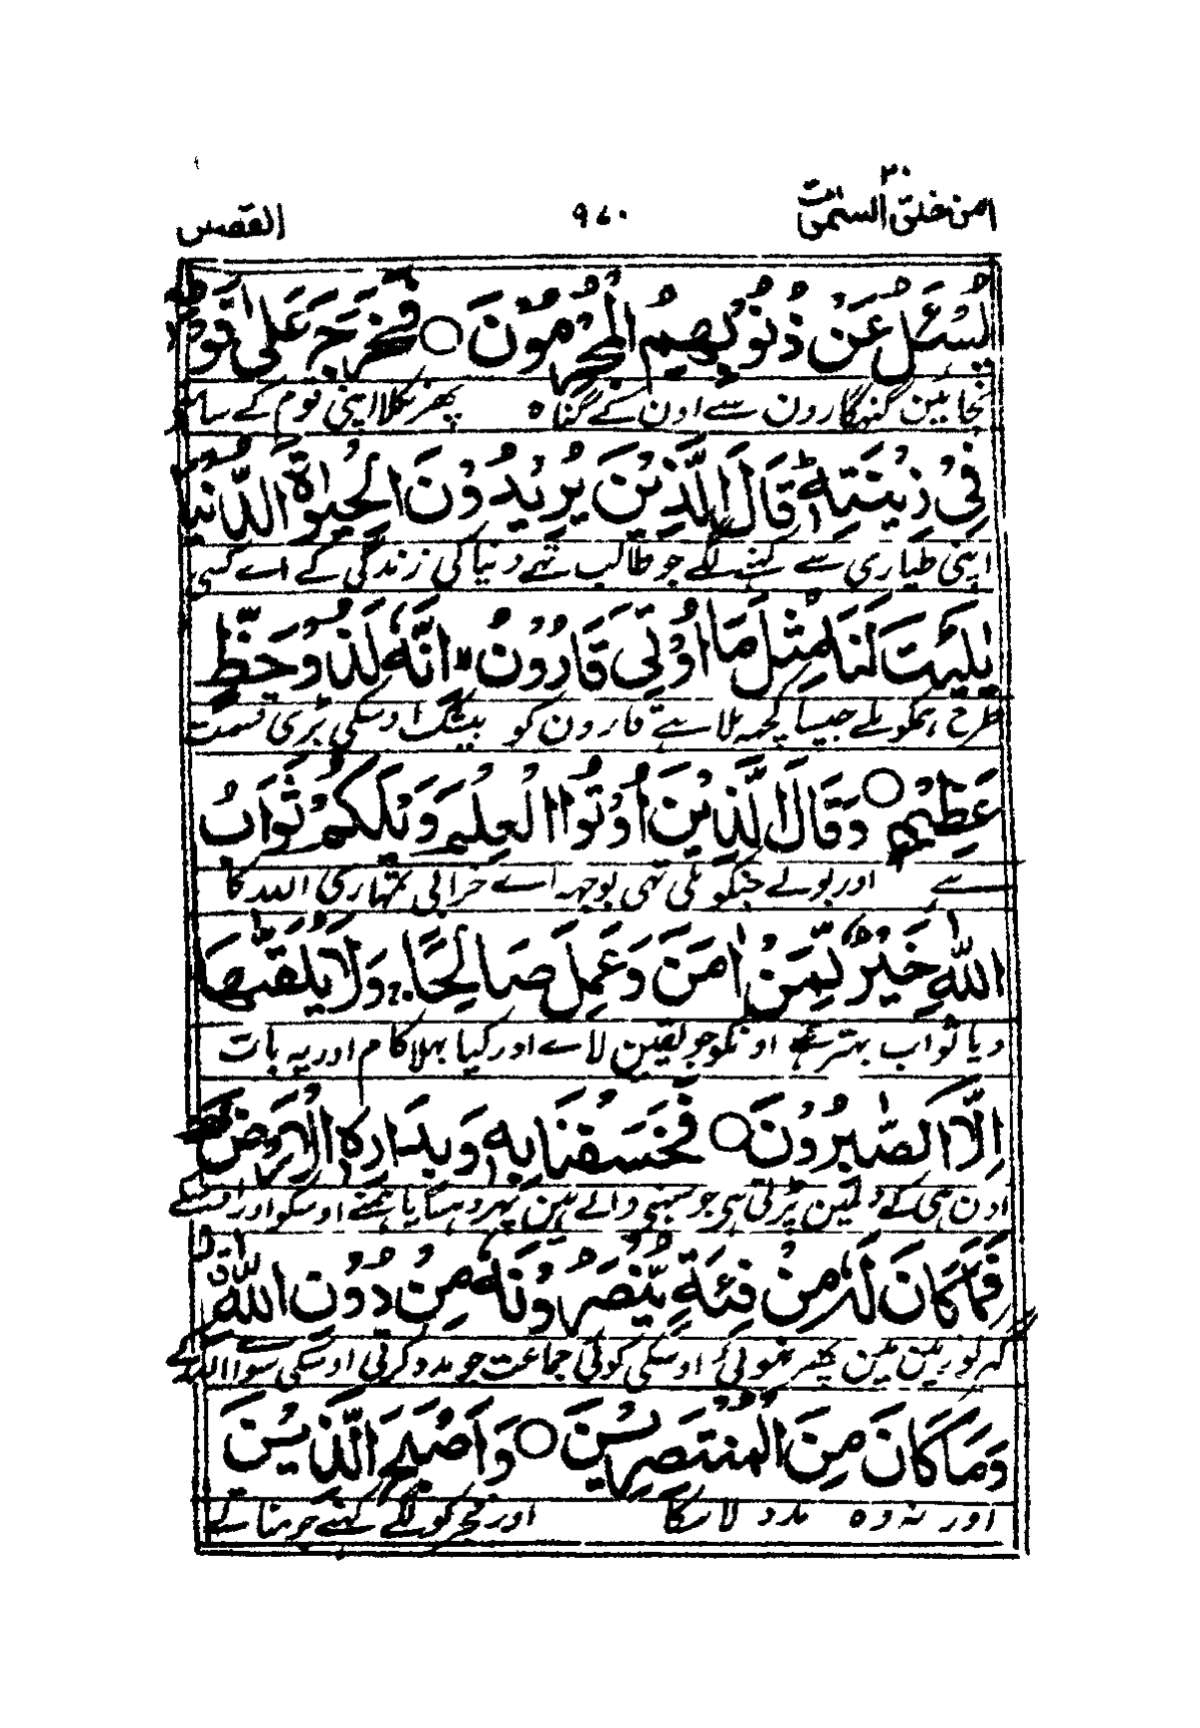 امن خلق السمٰوٰت ٢٠
٩٧٠
القصص
يُسْـَٔلُ عَنْ ذُنُوْبِهِمُ الْمُجْرِمُوْنَ ○ فَخَرَجَ عَلٰى قَوْمِهٖ
نجاین گنہگارون سے اون کے گناہ پھر نکلا اپنی قوم کے سامنے
فِيْ زِيْنَتِهٖ ؕ قَالَ الَّذِيْنَ يُرِيْدُوْنَ الْحَيٰوةَ الدُّنْيَا
اپنی طیاری سے کہنے لگے جو طالب تہے دنیا کی زندگی کے اے کسی
يٰلَيْتَ لَنَا مِثْلَ مَا اُوْتِيَ قَارُوْنُ اِنَّهٗ لَذُوْ حَظٍّ
طرح ہمکو ملے جیسا کچہہ ملا ہے قارون کو بیشک اوسکی بڑی قسمت
عَظِيْمٍ ○ وَقَالَ الَّذِيْنَ اُوْتُوا الْعِلْمَ وَيْلَكُمْ ثَوَابُ
ہے اور بولے جنکو ملی تہی بوجہہ اے خرابی تمہاری اللہ کا
اللّٰهِ خَيْرٌ لِّمَنْ اٰمَنَ وَعَمِلَ صَالِحًا وَلَا يُلَقّٰىهَا
دیا ثواب بہتر ہے اونکو جو یقین لاے اور کیا بہلا کام اور یہ بات
اِلَّا الصّٰبِرُوْنَ ○ فَخَسَفْنَا بِهٖ وَبِدَارِهِ الْاَرْضَ
اون ہی کے دلمین پڑتی ہی جو سہنی والے ہین پہر دہسایا ہمنے اوسکو اور اوسکے
فَمَا كَانَ لَهٗ مِنْ فِئَةٍ يَّنْصُرُوْنَهٗ مِنْ دُوْنِ اللّٰهِ
گہر کو زمین مین پہر نہوئی اوسکی کوئی جماعت جو مدد کرتی اوسکی سوا اللہ کے
وَمَا كَانَ مِنَ الْمُنْتَصِرِيْنَ ○ وَاَصْبَحَ الَّذِيْنَ
اور نہ وہ مدد لا سکا اور فجر کو لگے کہنے جو مناتے